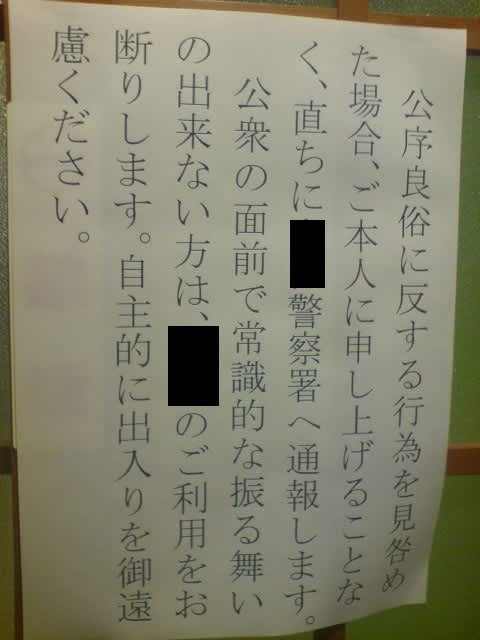 公序良俗に反する行為を見咎め
た場合、ご本人に申し上げることな
く、直ちに警察署へ通報します。
公衆の面前で常識的な振る舞い
の出来ない方は、のご利用をお
断りします。自主的に出入りを御遠
慮ください。